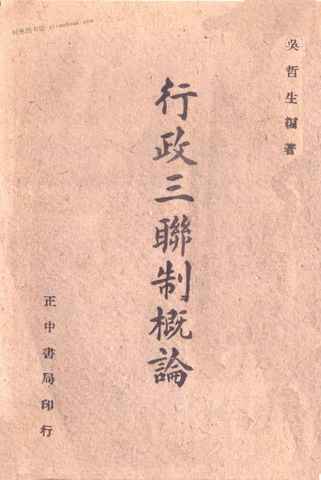 吳哲生編著
行政三聯制概論
正中書局印行